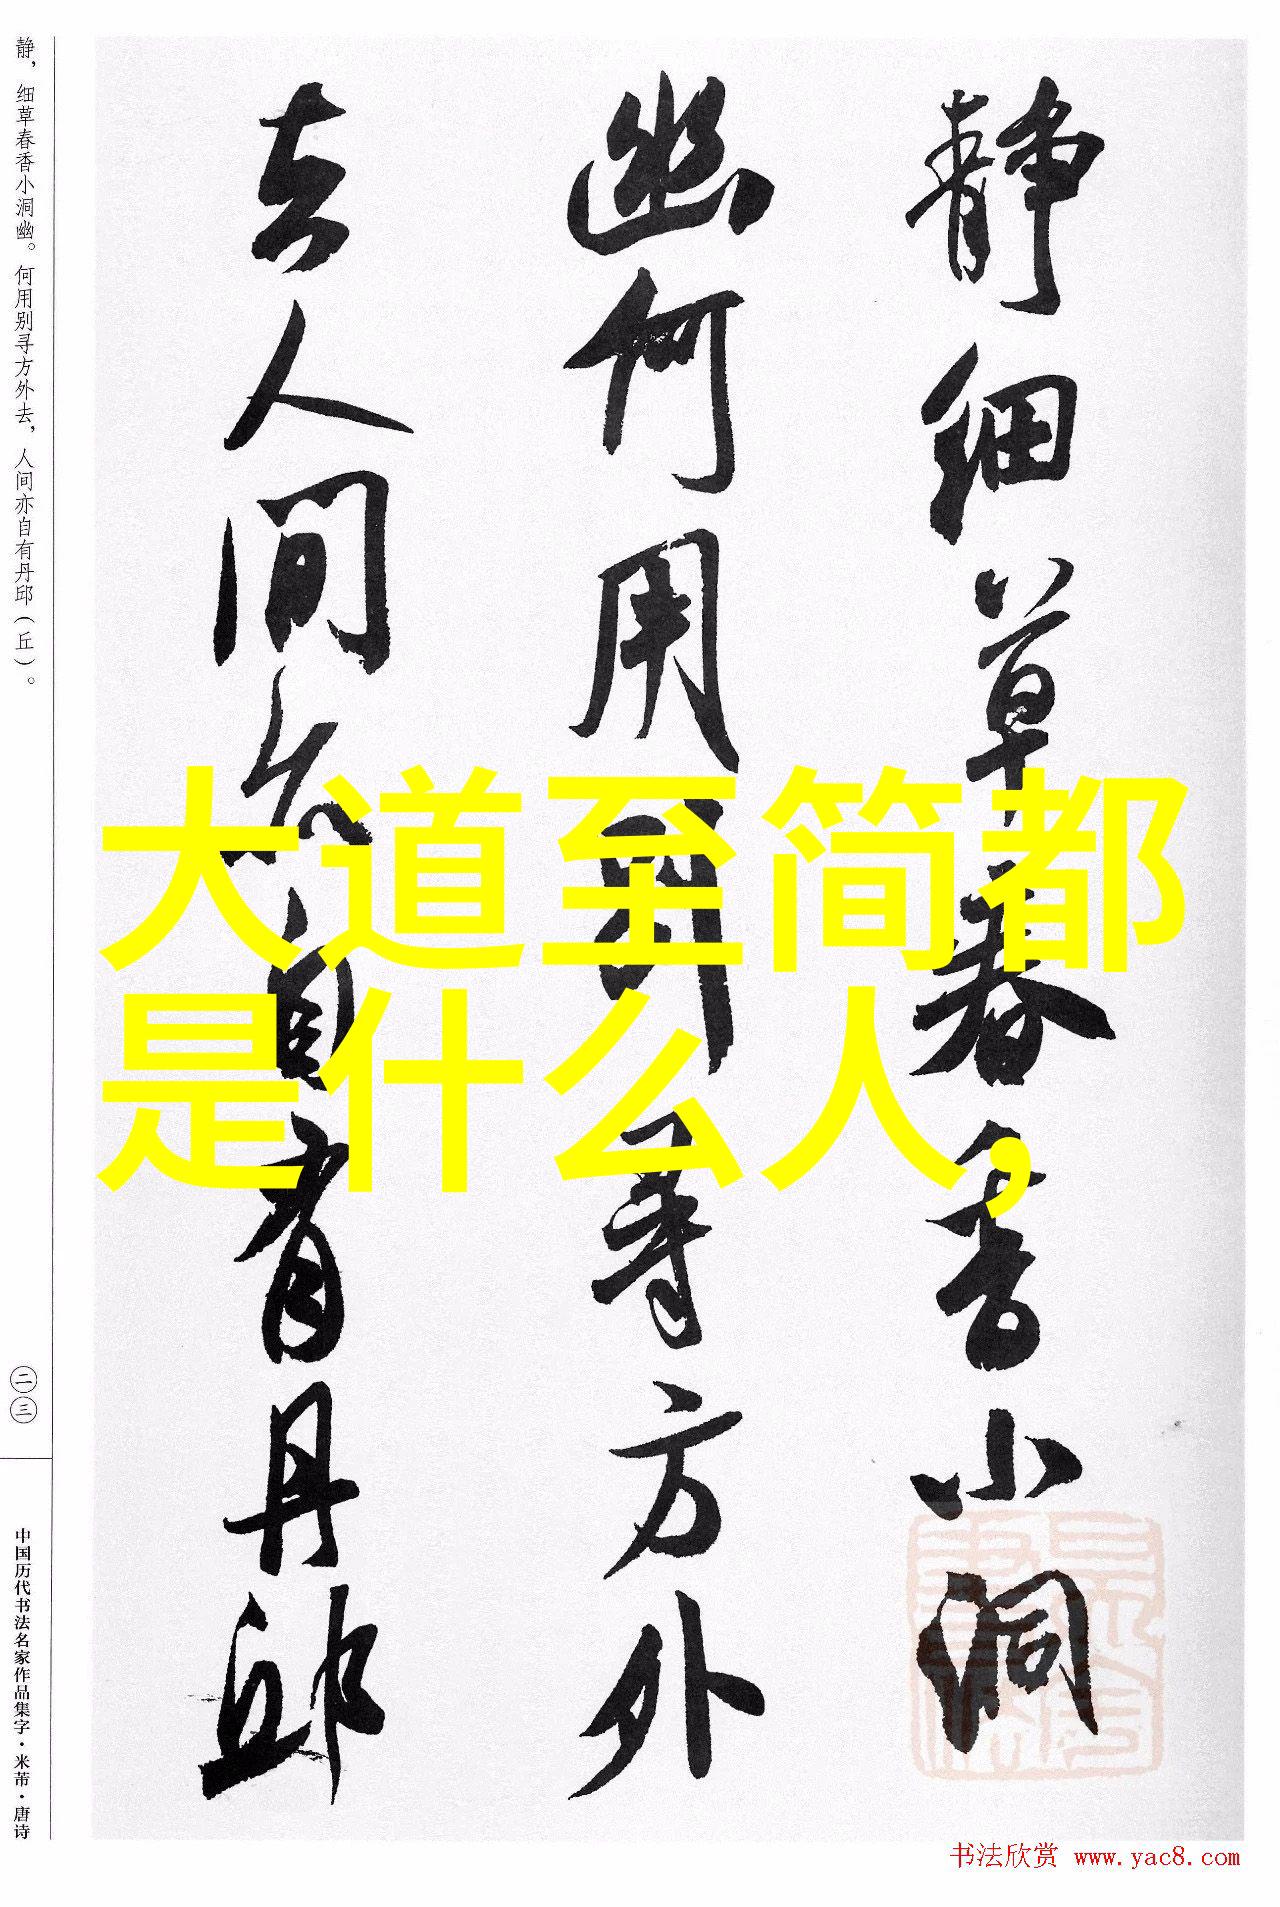 静细草春香小洞
幽何用别寻方外
去人间亦自有丹邱
静，细草春香小洞幽。何用别寻方外去，人间亦自有丹邱（丘）。
二三
中国历代书法名家作品集字·米芾·唐诗
大道至简都
是什么人，
书法欣赏 www.yac8.com